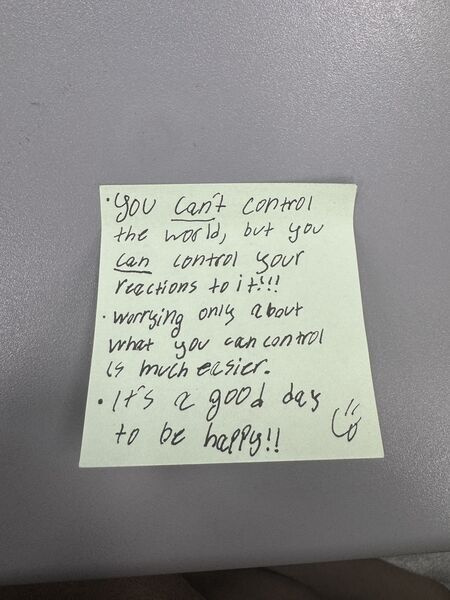 • You can't control
the world, but you
can control your
reactions to it!!!
• Worrying only about
what you can control
is much easier.
• It's a good day
to be happy!!